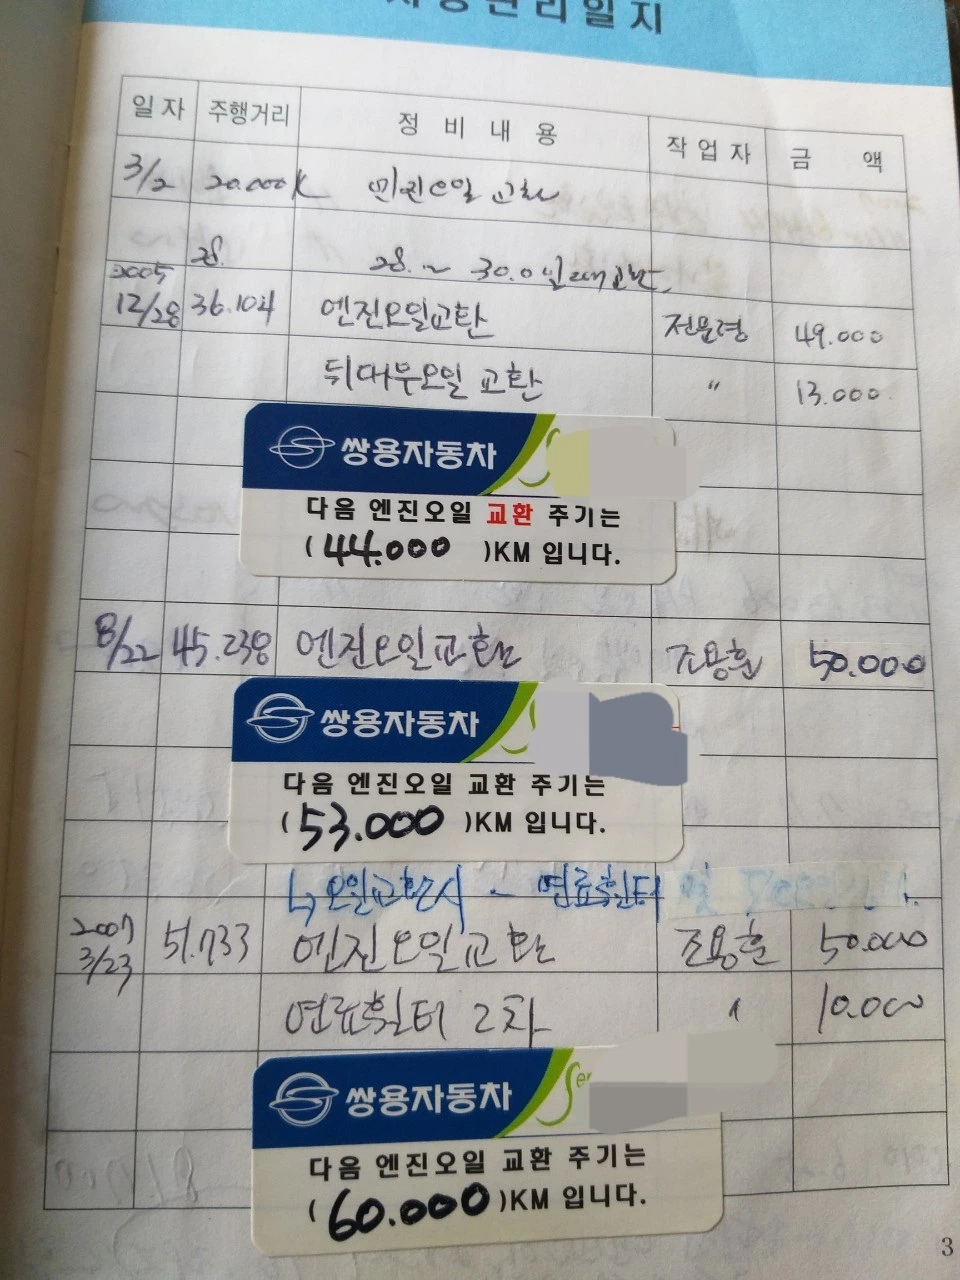 관리일지
일자 주행거리 정비내용 작업자 금액
3/2 20.000K 엔진오일 교환
28. 28. ~ 30.0
2005
12/28 36.104 엔진오일교환 전문령 49.000
뒤대우오일 교환 〃 13.000
쌍용자동차
다음 엔진오일 교환 주기는
(44.000)KM 입니다.
8/22 45.238 엔진오일교환 조용훈 50.000
쌍용자동차
다음 엔진오일 교환 주기는
(53.000)KM 입니다.
↳ 오일교환시 - 연료휠터 및
2007
3/23 51.733 엔진오일교환 조용훈 50.000
연료휠터 2차 〃 10.000
쌍용자동차 Ser
다음 엔진오일 교환 주기는
(60.000)KM 입니다.
3